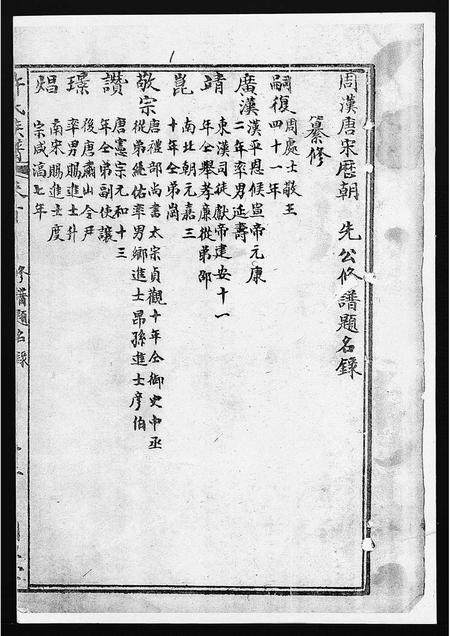 周漢唐宋歷朝 先公修譜題名錄
纂修
嗣復周處士敬王
四十一年
廣漢漢平恩侯宣帝元康
二年率男延壽
靖東漢司徒獻帝建安十一
年仝舉孝廉從弟邵
崑南北朝元嘉三
十年仝弟崗
敬宗唐禮部尚書太宗貞觀十年仝御史中丞
從弟繞佑率男鄉進士昂孫進士彦伯
讚唐憲宗元和十三
年仝弟副使讓
璟後唐肅山令尹
率男賜進士升
焻南宋賜進士度
宗咸淳七年
許氏族譜
修譜題名錄